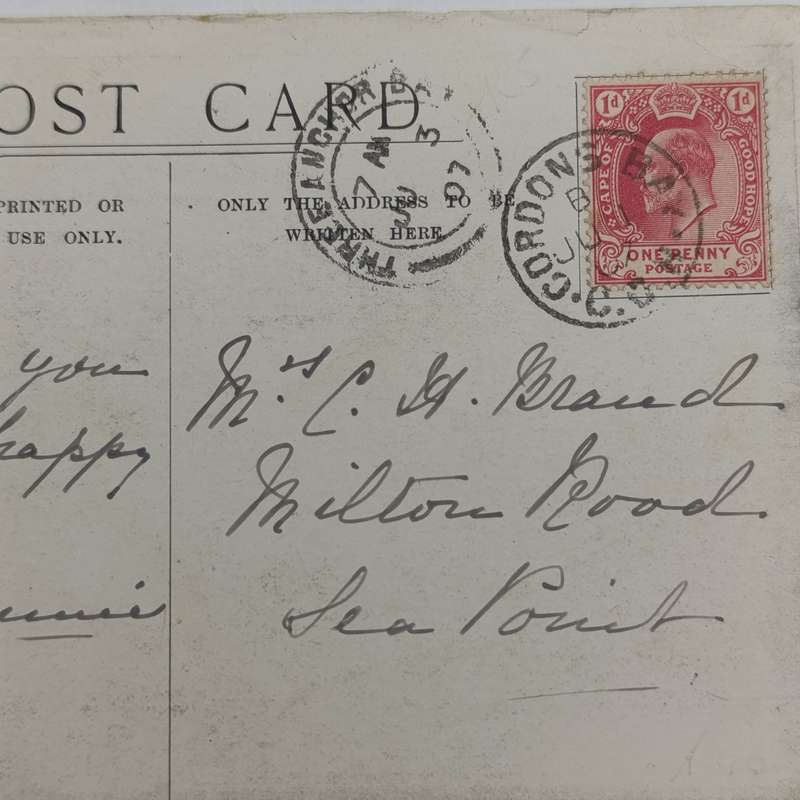 OST CARD
PRINTED OR
USE ONLY.
ONLY THE ADDRESS TO BE
WRITTEN HERE
THREE ANCHOR BAY
7 AM
3
07
1d 1d
CAPE OF GOOD HOPE
ONE PENNY
POSTAGE
GORDON'S BAY
B
C.G.H.
you
happy
Mrs C. H. Brand
Milton Road
Sea Point